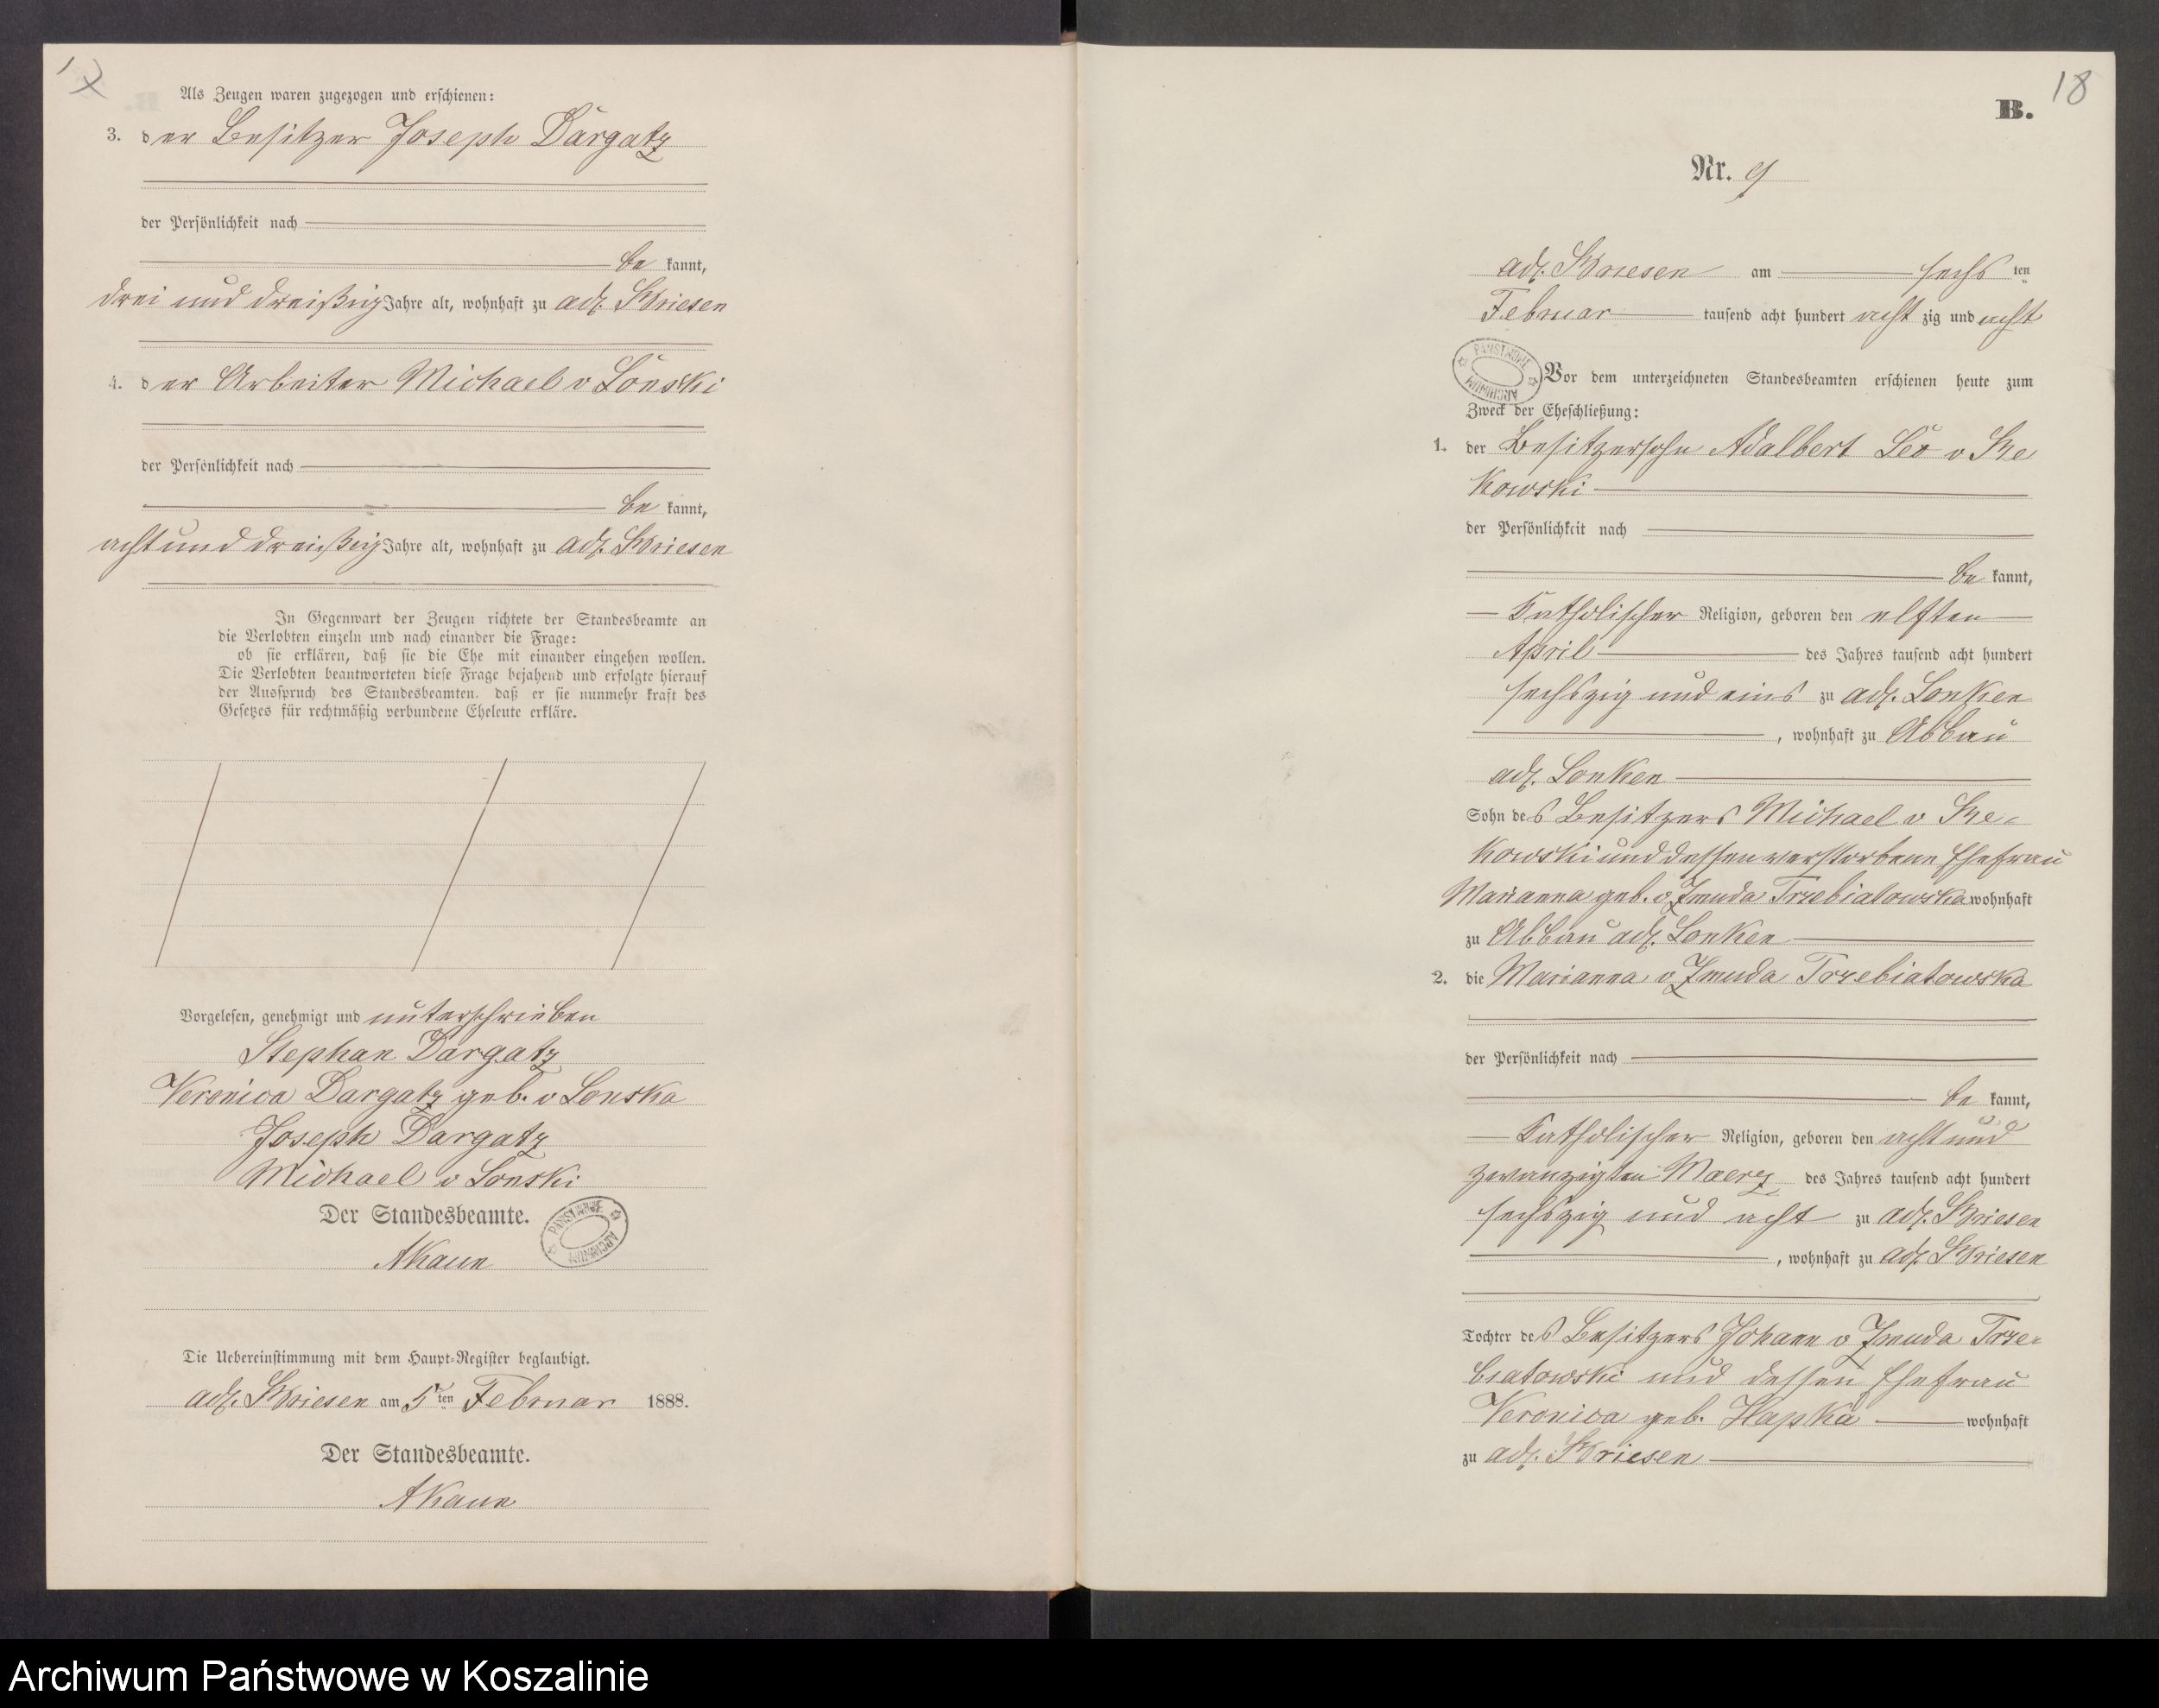 17
Als Zeugen waren zugezogen und erschienen:
3. der Besitzer Joseph Dargatz
der Persönlichkeit nach
be kannt,
drei und dreißig Jahre alt, wohnhaft zu adl. Briesen
4. der Arbeiter Michael v Lonski
der Persönlichkeit nach
be kannt,
acht und dreißig Jahre alt, wohnhaft zu adl. Briesen
In Gegenwart der Zeugen richtete der Standesbeamte an
die Verlobten einzeln und nach einander die Frage:
ob sie erklären, daß sie die Ehe mit einander eingehen wollen.
Die Verlobten beantworteten diese Frage bejahend und erfolgte hierauf
der Ausspruch des Standesbeamten, daß er sie nunmehr kraft des
Gesetzes für rechtmäßig verbundene Eheleute erkläre.
Vorgelesen, genehmigt und unterschrieben
Stephan Dargatz
Veronica Dargatz geb. v Lonska
Joseph Dargatz
Michael v Lonski
Der Standesbeamte.
PAŃSTWOWE ARCHIWUM
AKaun
Die Uebereinstimmung mit dem Haupt-Register beglaubigt.
adl. Briesen am 5ten Februar 1888.
Der Standesbeamte.
AKaun
18
B.
Nr. 9
adl. Briesen am sechs ten
Februar tausend acht hundert acht zig und acht
PAŃSTWOWE ARCHIWUM
Vor dem unterzeichneten Standesbeamten erschienen heute zum
Zweck der Eheschließung:
1. der Besitzersohn Adalbert Leo v Re
kowski
der Persönlichkeit nach
be kannt,
Katholischer Religion, geboren den elften
April des Jahres tausend acht hundert
sechszig und eins zu adl. Lonken
, wohnhaft zu Abbau
adl. Lonken
Sohn des Besitzers Michael v Re-
kowski und dessen verstorbene Ehefrau
Marianna geb. v Zmuda Trzebiatowska wohnhaft
zu Abbau adl. Lonken
2. die Marianna v Zmuda Trzebiatowska
der Persönlichkeit nach
be kannt,
Katholischer Religion, geboren den acht und
zwanzigten Maerz des Jahres tausend acht hundert
sechszig und acht zu adl. Briesen
, wohnhaft zu adl. Briesen
Tochter des Besitzers Johann v Zmuda Trze-
biatowski und dessen Ehefrau
Veronica geb. Hapka wohnhaft
zu adl. Briesen
Archiwum Państwowe w Koszalinie